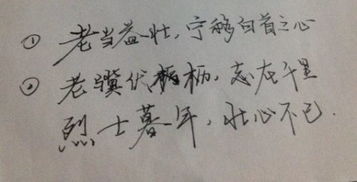 ① 老当益壮,宁移白首之心
② 老骥伏枥,志在千里
烈士暮年,壮心不已.